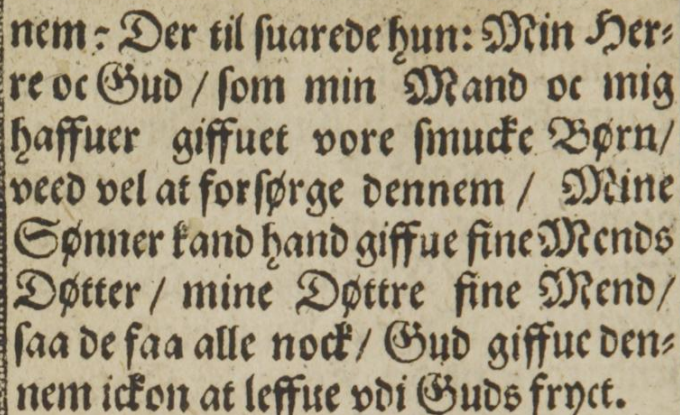 nem? Der til suarede hun: Min Her⸗
re oc Gud / som min Mand oc mig
haffuer giffuet vore smucke Børn /
veed vel at forsørge dennem / Mine
Sønner kand hand giffue fine Mends
Døtter / mine Døttre fine Mend /
saa de faa alle nock / Gud giffue den⸗
nem ickon at leffue vdi Guds fryct.